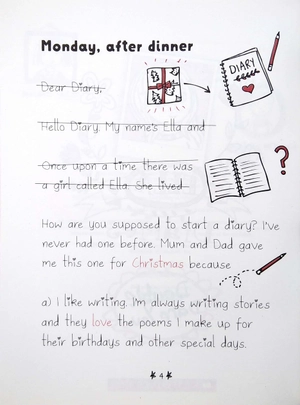 Monday, after dinner
DIARY
Dear Diary,
Hello Diary. My name's Ella and
Once upon a time there was
a girl called Ella. She lived
?
How are you supposed to start a diary? I've
never had one before. Mum and Dad gave
me this one for Christmas because
a) I like writing. I'm always writing stories
and they love the poems I make up for
their birthdays and other special days.
4